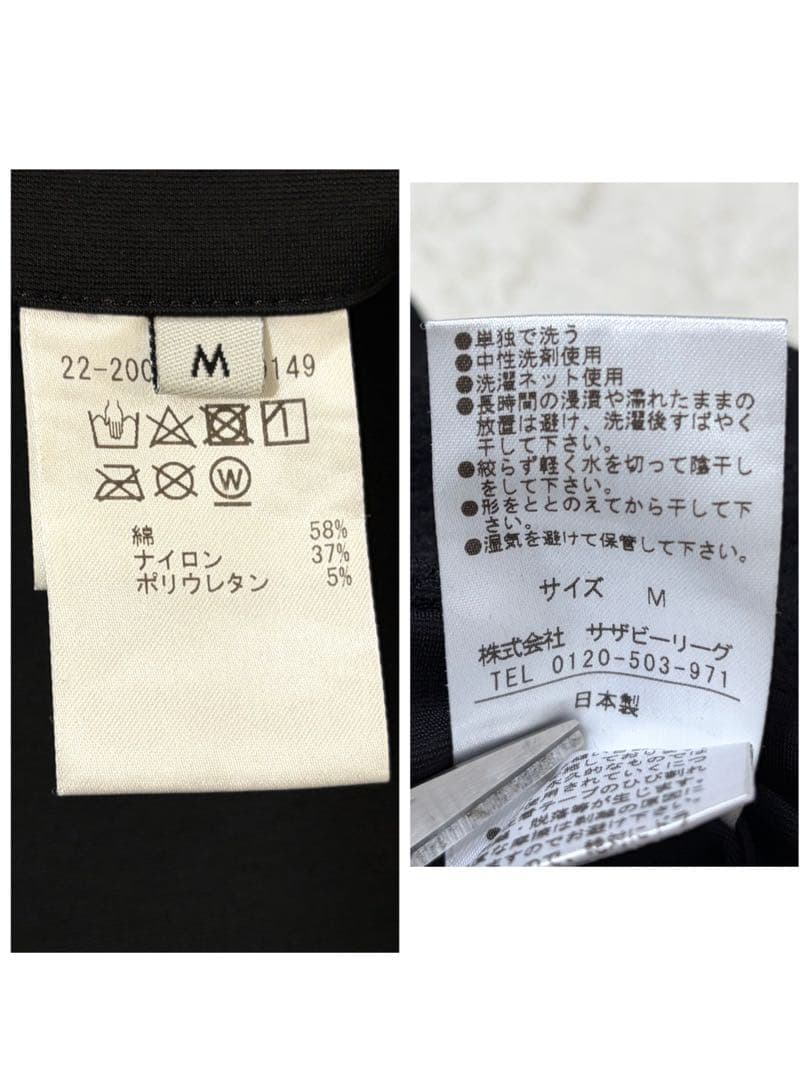 M
22-200 149
1
W
綿 58%
ナイロン 37%
ポリウレタン 5%
●単独で洗う
●中性洗剤使用
●洗濯ネット使用
●長時間の浸漬や濡れたままの
放置は避け、洗濯後すばやく
干して下さい。
●絞らず軽く水を切って陰干し
をして下さい。
●形をととのえてから干して下
さい。
●湿気を避けて保管して下さい。
サイズ M
株式会社 サザビーリーグ
TEL 0120-503-971
日本製